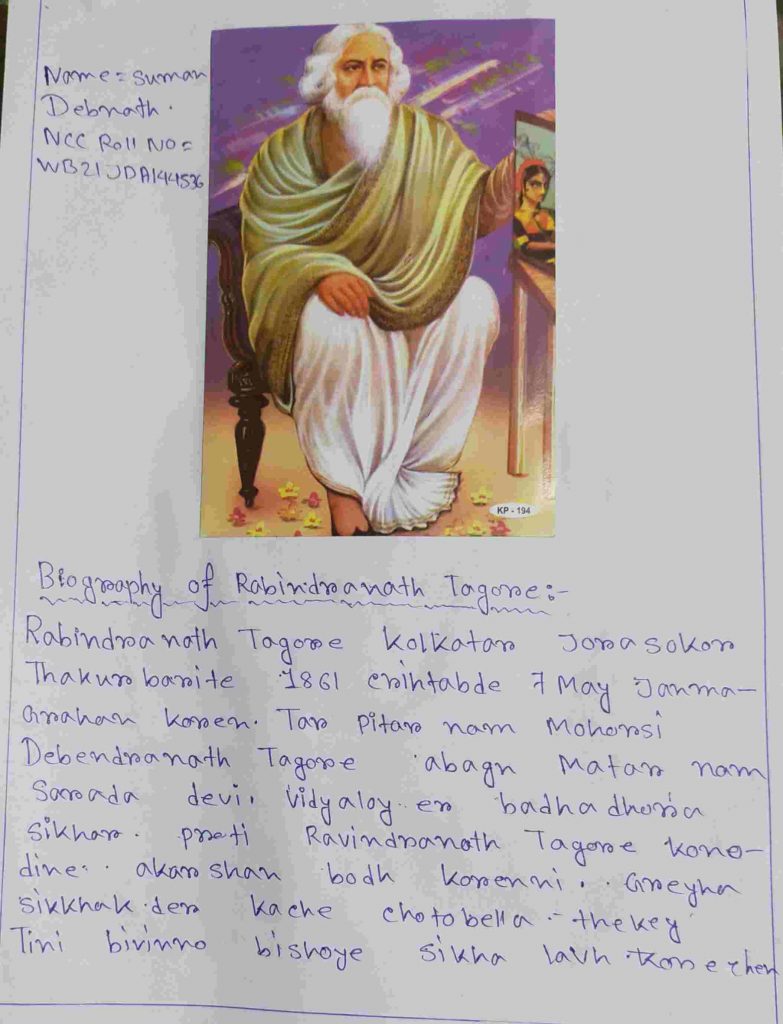 Name = Suman
Debnath.
NCC Roll No =
WB21JDA144536
KP - 194
Biography of Rabindranath Tagore:-
Rabindranath Tagore Kolkatar Jorasokor
Thakurbarite 1861 crihtabde 7 May Janma-
grahan koren. Tar pitar nam Mohorsi
Debendranath Tagore abagn Matar nam
Sarada devi. Vidyaloy er badhadhoria
sikhar. prati Ravindranath Tagore kono-
dine. akarshan bodh korenni. Greyha
sikkhak der kache chotobella - thekey
Tini bivinno bishoye sikha lavh korechen